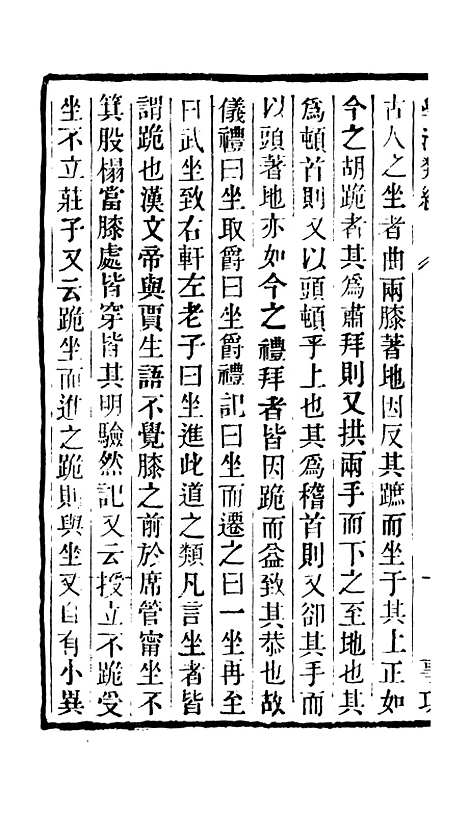 古人之坐者曲兩膝著地因反其蹠而坐于其上正如
今之胡跪者其爲肅拜則又拱兩手而下之至地也其
爲頓首則又以頭頓乎上也其爲稽首則又卻其手而
以頭著地亦如今之禮拜者皆因跪而益致其恭也故
儀禮曰坐取爵曰坐爵禮記曰坐而遷之曰一坐再至
曰武坐致右軒左老子曰坐進此道之類凡言坐者皆
謂跪也漢文帝與賈生語不覺膝之前於席管甯坐不
箕股榻當膝處皆穿皆其明驗然記又云授立不跪受
坐不立莊子又云跪坐而進之跪則與坐又自有小異